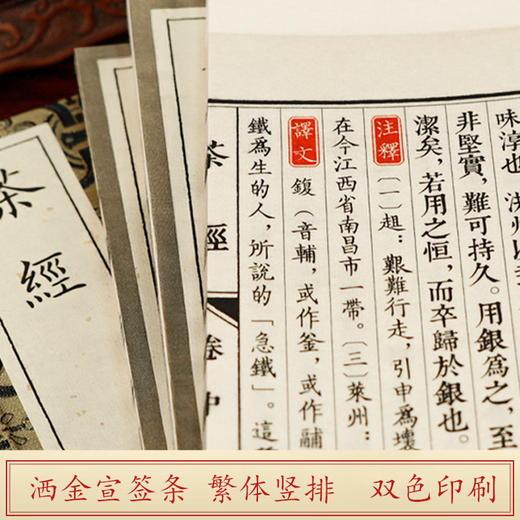 味淳也
非堅實，難可持久。用銀爲之，至
潔矣，若用之恒，而卒歸於銀也。
注釋 〔一〕趄：艱難行走，引申爲壞
在今江西省南昌市一帶。〔三〕萊州：
譯文 鍑（音輔，或作釜，或作鬴
鐵爲生的人，所說的「急鐵」。這
茶經 卷中
茶經
洒金宣签条 繁体竖排 双色印刷